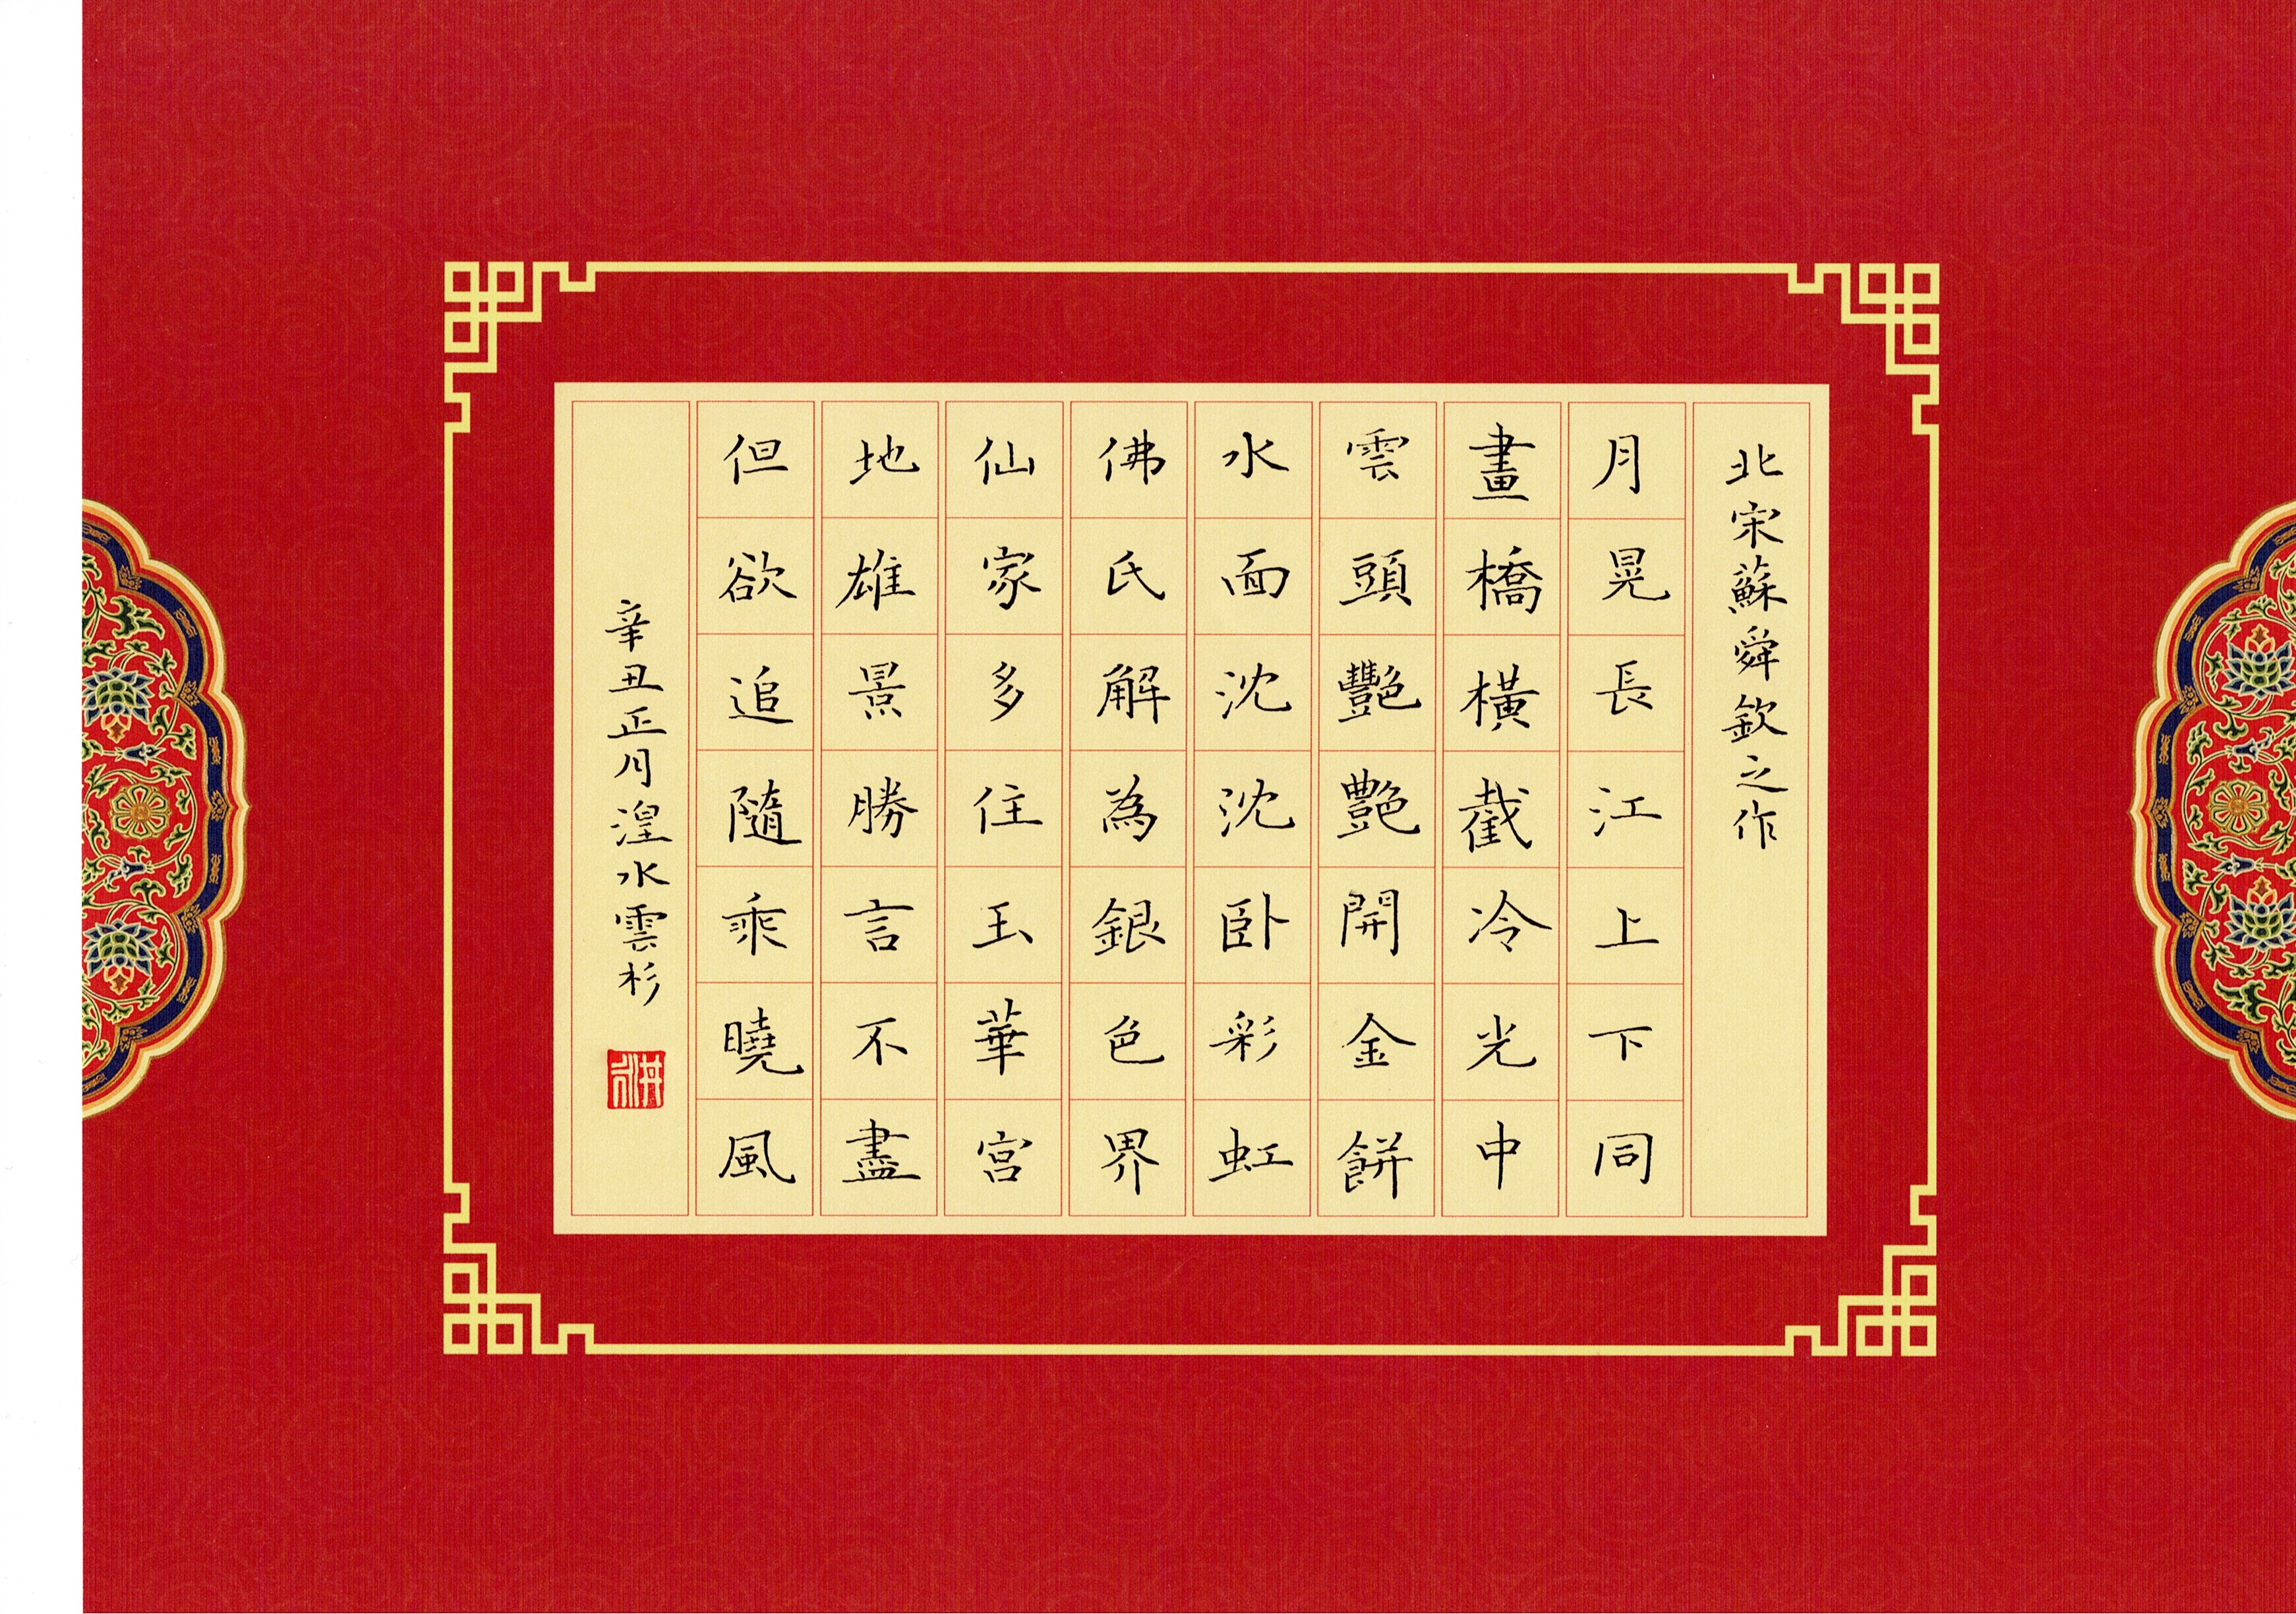 北宋蘇舜欽之作
月晃長江上下同
畫橋橫截冷光中
雲頭豔艷開金餅
水面沈沈臥彩虹
佛氏解為銀色界
仙家多住玉華宮
地雄景勝言不盡
但欲追隨乘曉風
辛丑正月湟水雲杉